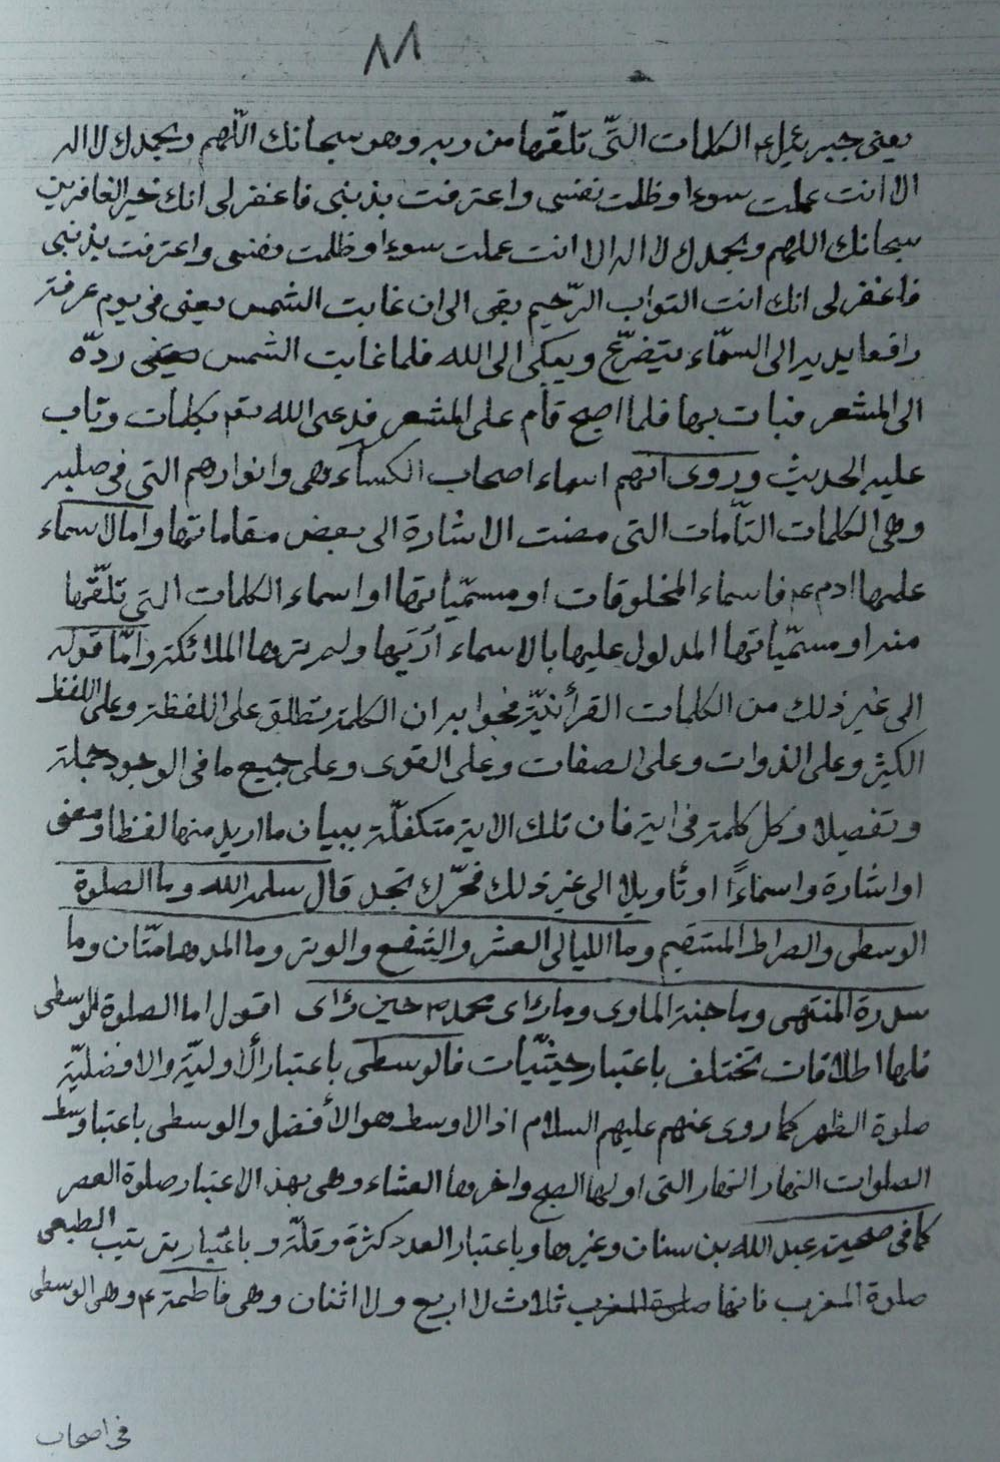 ٨٨
يعنى جبرئيل ع الكلمات التّى تلقّيها من ربه وهو سبحانك اللّهم وبحمدك لا اله
الا انت عملت سوءا وظلمت نفسى واعترفت بذنبى فاغفرلى انك خير الغافرين
سبحانك اللهم وبحمدك لا اله الا انت عملت سوءا وظلمت نفسى واعترفت بذنبى
فاغفرلى انك انت التواب الرّحيم بقى الى ان غابت الشمس يعنى فى يوم عرفة
رافعا يديه الى السمّاء يتضرّع ويبكى الى الله فلما غابت الشمس ردّه
الى المشعر فبات بها فلما اصبح قام على المشعر فدعى الله تعم بكلمات وتاب
عليه الحديث وروى انّهم اسماء اصحاب الكساء وهى وانوارهم التى فى صلبه
وهى الكلمات التاّمات التى مضت الاشارة الى بعض مقاماتها واما الاسماء
علمها ادم ع فاسماء المخلوقات او مسمّياتها او اسماء الكلمات التى تلقّيها
منه او مسمّياتها المدلول عليها بالاسماء اذ يّها ولم ترها الملائكة وامّا قوله
الى غير ذلك من الكلمات القرأنيّة فجوابه ان الكلمة تطلق على اللفظة وعلى اللفظ
الكثير وعلى الذوات وعلى الصفات وعلى القوى وعلى جميع ما فى الوجود جملة
وتفصيلا وكل كلمة فى اية فان تلك الاية متكفلّة ببيان ما اريد منها لفظا ومعنى
او اشارة واسماءًا او تأويلا الى غير ذلك فحرّك تجد قال سلمه الله وما الصلوة
الوسطى والصراط المستقيم وما الليالى العشر والشفع والوتر وما المدهامتّان وما
سدرة المنتهى وما جنة الماوى وما رأى محمد ص حين رأى اقول اما الصلوة الوسطى
فلها اطلاقات تختلف باعتبار حيثيّات فالوسطى باعتبار الأوليّة والافضليّة
صلوة الظهر كما روى عنهم عليهم السلام اذ الاوسط هو الأفضل والوسطى باعتبار وسط
الصلوات النهار النهار التى اولها الصبح واخرها العشاء وهى بهذ الاعتبار صلوة العصر
كما فى صحيحة عبد الله بن سنان وغيرها وباعتبار العدد كثرة وقلّة وباعتبار ترتيب الطبعى
صلوة المغرب فانها صلوة المغرب ثلاث لا اربع ولا اثنان وهى فاطمة ع وهى الوسطى
فى اصحاب